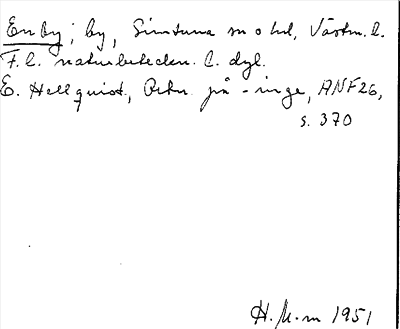 Enby; by, Simtuna sn o hd, Västm. l.
F. l. naturbeteckn. l. dyl.
E. Hellquist, Ortn. på -inge, ANF 26,
s. 370
H. M-m 1951